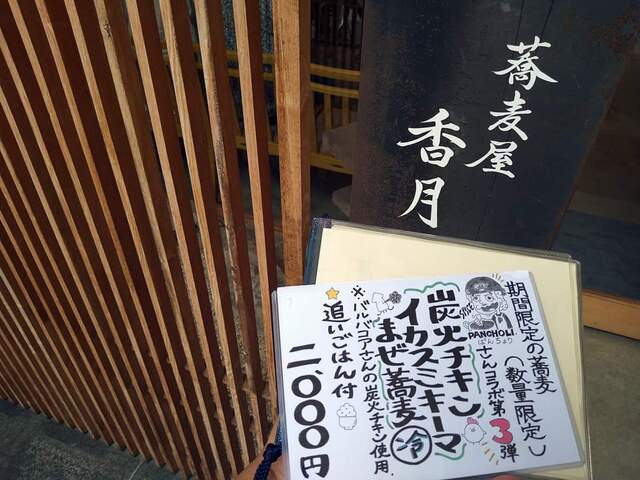 蕎麦屋
香月
期間限定の蕎麦
(数量限定)
PANCHOLI
ぱんちょり
さんコラボ第3弾
炭火チキン
イカスミキーマ
まぜ蕎麦 冷
※バルバコアさんの炭火チキン使用
追いごはん付
二,000円